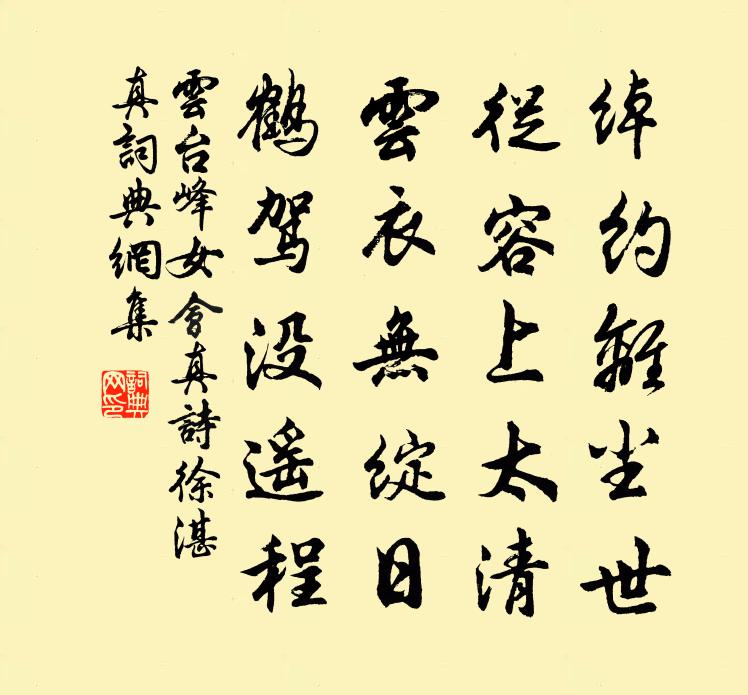 綽約離尘世
從容上太清
雲衣無綻日
鶴駕没遥程
雲台峰女會真詩徐湛
真詞典網集
詞典
网印